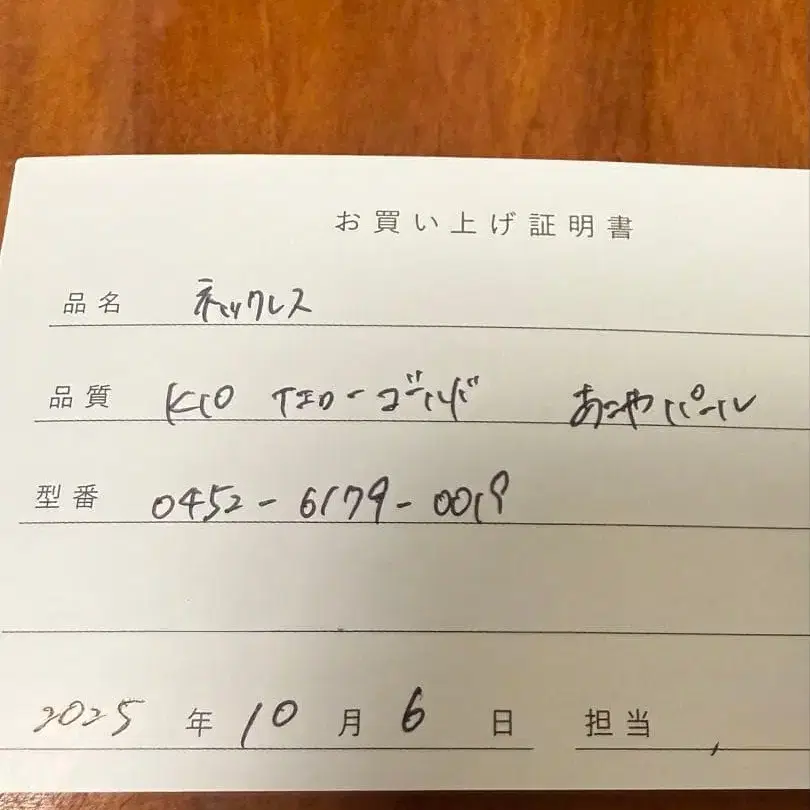 お買い上げ証明書
品名 ネックレス
品質 K10 イエローゴールド あこやパール
型番 0452-6179-0019
2025年10月6日 担当